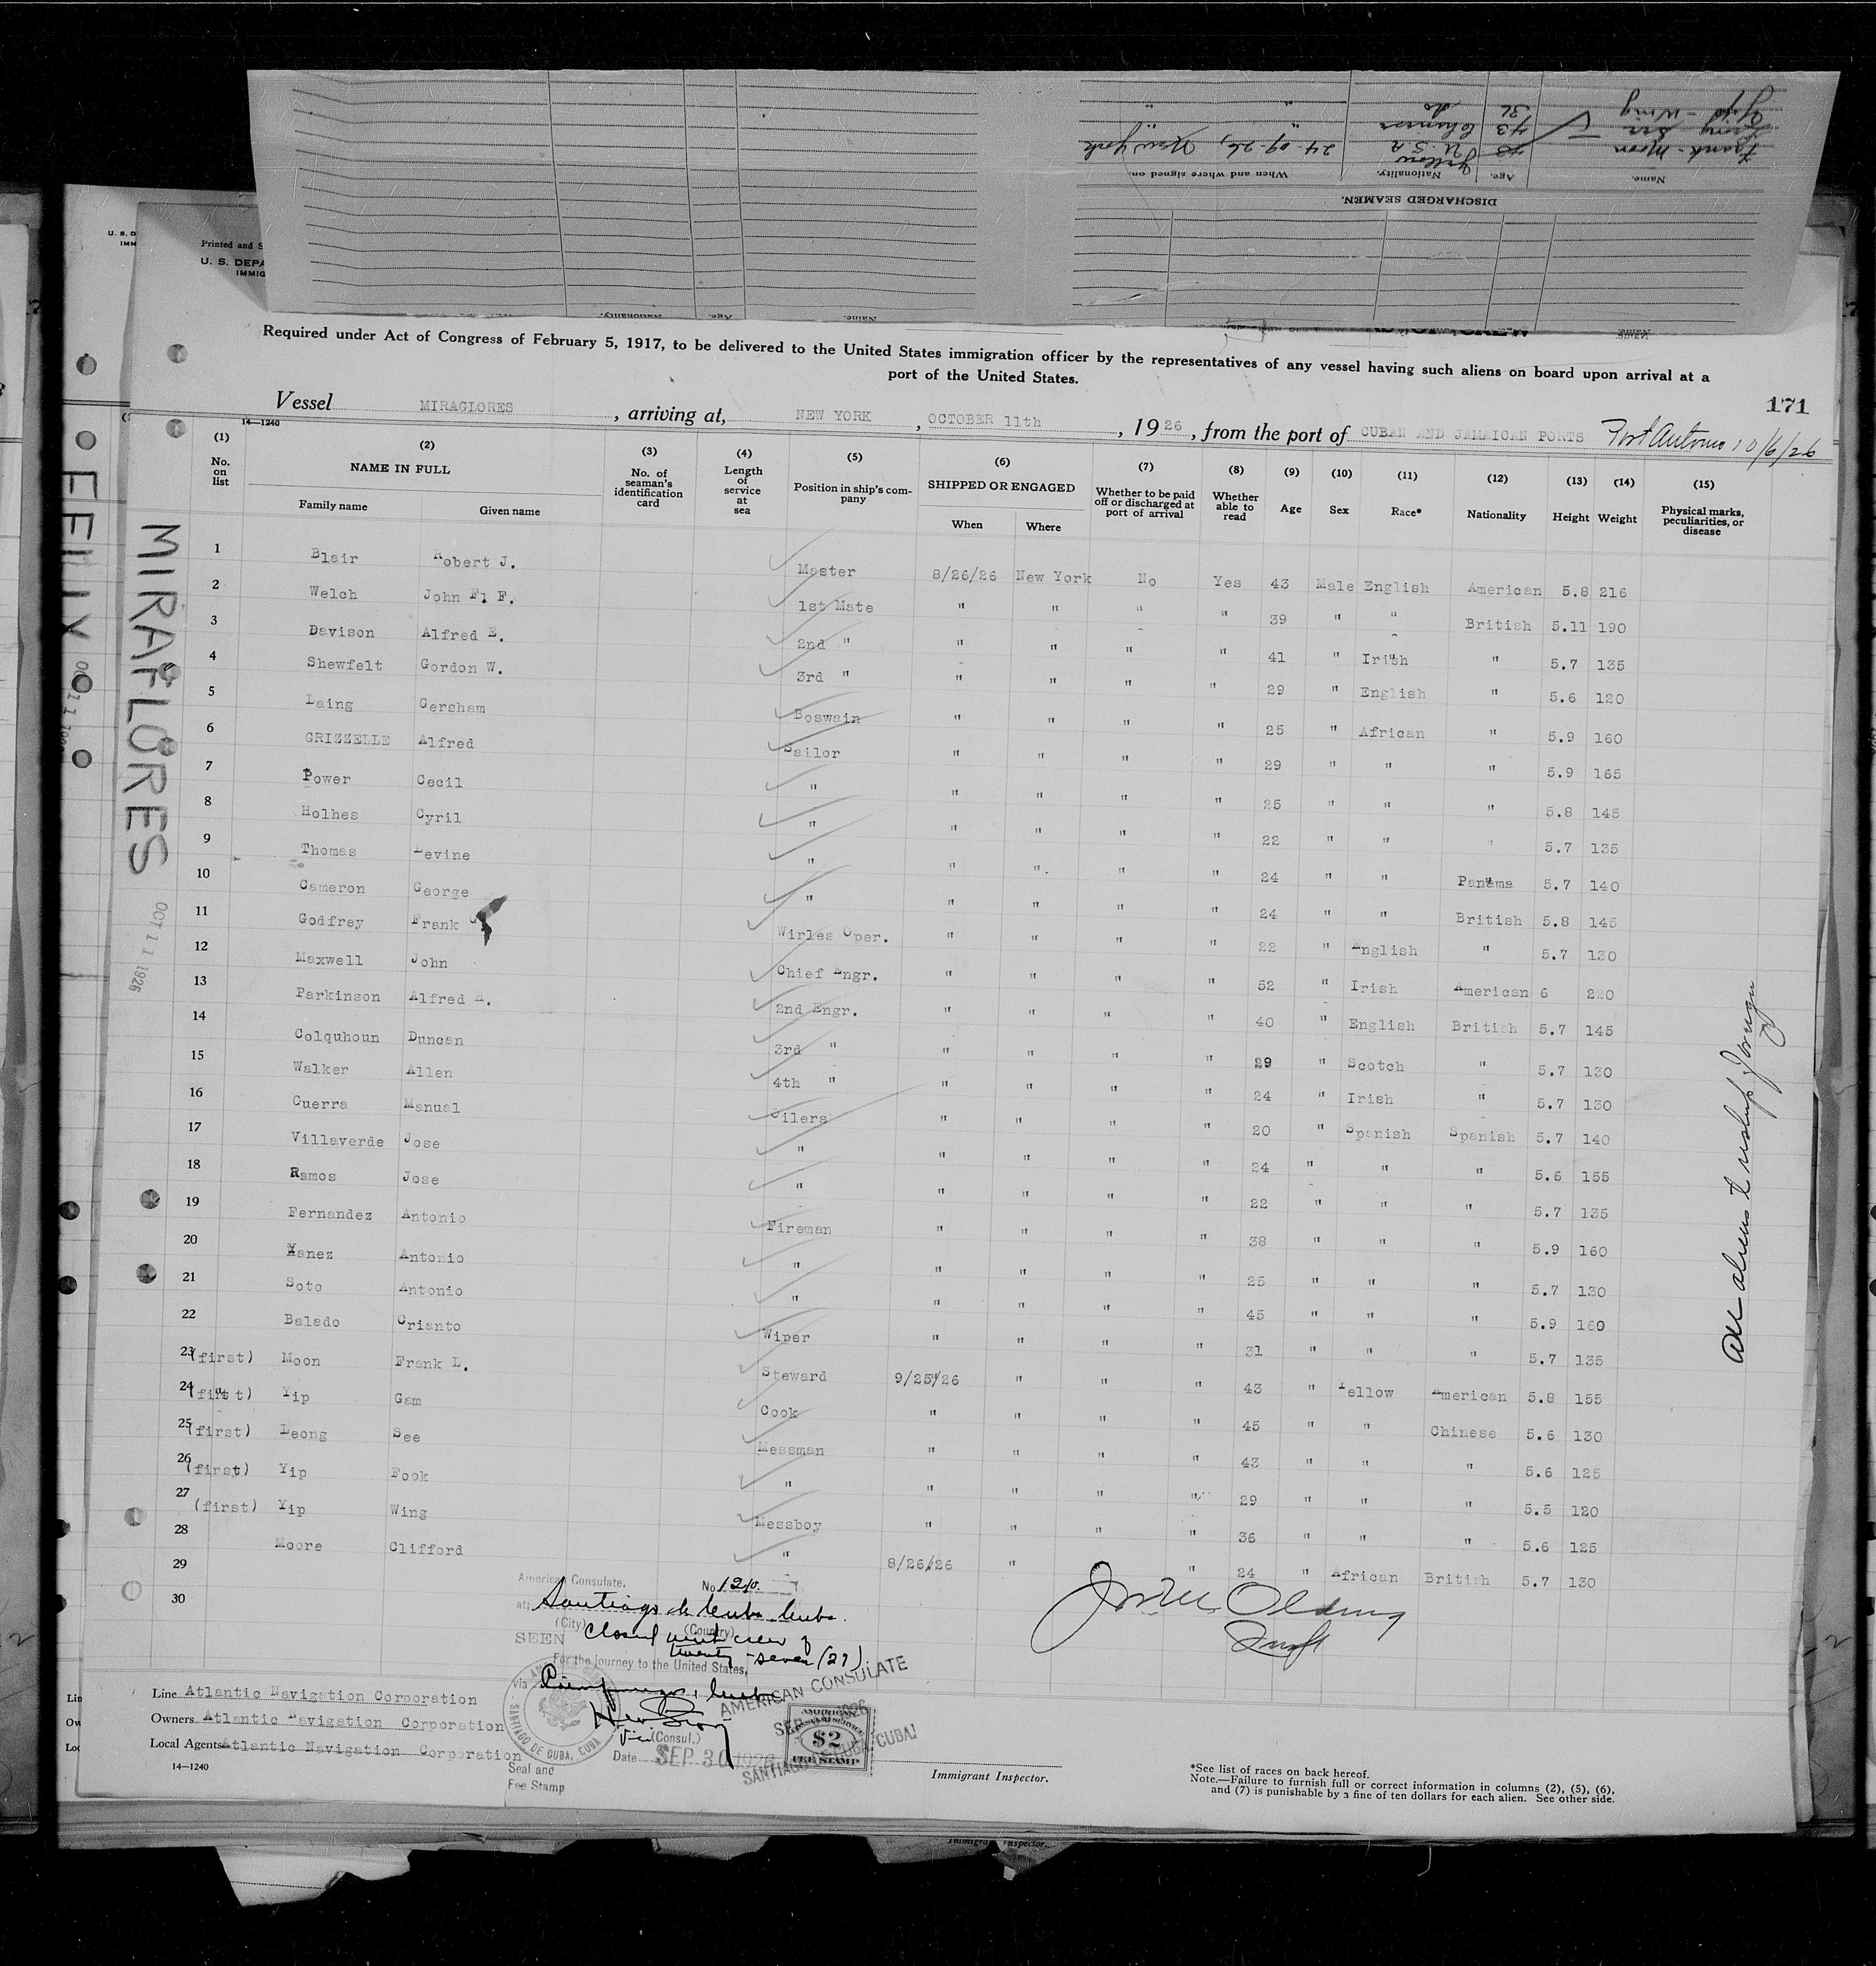 DISCHARGED SEAMEN.
Name. Age. Nationality. When and where signed on.
Frank Moon 43 U.S.A 24-09-26, New York
43 Chinese " "
Wing 36 do
Name. Age. Nationality.
Printed and S
U. S. DEPA
IMMIG
U. S. D
IMM
Required under Act of Congress of February 5, 1917, to be delivered to the United States immigration officer by the representatives of any vessel having such aliens on board upon arrival at a
port of the United States.
171
Vessel MIRAGLORES, arriving at, NEW YORK, OCTOBER 11th, 1926, from the port of CUBAN AND JAMAICAN PORTS Port Antonio 10/6/26
14—1240
(1) No. on list (2) NAME IN FULL Family name Given name (3) No. of seaman's identification card (4) Length of service at sea (5) Position in ship's company (6) SHIPPED OR ENGAGED When Where (7) Whether to be paid off or discharged at port of arrival (8) Whether able to read (9) Age (10) Sex (11) Race* (12) Nationality (13) Height (14) Weight (15) Physical marks, peculiarities, or disease
1 Blair Robert J. Master 8/26/26 New York No Yes 43 Male English American 5.8 216
2 Welch John F. F. 1st Mate " " " " 39 " " British 5.11 190
3 Davison Alfred E. 2nd " " " " " 41 " Irish " 5.7 135
4 Shewfelt Gordon W. 3rd " " " " " 29 " English " 5.6 120
5 Laing Gersham Boswain " " " " 25 " African " 5.9 160
6 GRIZZELLE Alfred Sailor " " " " 29 " " " 5.9 165
7 Power Cecil " " " " " 25 " " " 5.8 145
8 Holhes Cyril " " " " " 22 " " " 5.7 135
9 Thomas Levine " " " " " 24 " " Panama 5.7 140
10 Cameron George " " " " " 24 " " British 5.8 145
11 Godfrey Frank Wirles Oper. " " " " 22 " English " 5.7 130
12 Maxwell John Chief Engr. " " " " 52 " Irish American 6 220
13 Parkinson Alfred H. 2nd Engr. " " " " 40 " English British 5.7 145
14 Colquhoun Duncan 3rd " " " " " 29 " Scotch " 5.7 130
15 Walker Allen 4th " " " " " 24 " Irish " 5.7 130
16 Guerra Manual Oilers " " " " 20 " Spanish Spanish 5.7 140
17 Villaverde Jose " " " " " 24 " " " 5.6 155
18 Ramos Jose " " " " " 22 " " " 5.7 135
19 Fernandez Antonio Fireman " " " " 38 " " " 5.9 160
20 Yanez Antonio " " " " " 25 " " " 5.7 130
21 Soto Antonio " " " " " 45 " " " 5.9 160
22 Balado Crianto Wiper " " " " 31 " " " 5.7 135
23 (first) Moon Frank L. Steward 9/25/26 " " " 43 " Yellow American 5.8 155
24 (first) Yip Gam Cook " " " " 45 " " Chinese 5.6 130
25 (first) Leong See Messman " " " " 43 " " " 5.6 125
26 (first) Yip Fook " " " " " 29 " " " 5.5 120
27 (first) Yip Wing Messboy " " " " 36 " " " 5.6 125
28 Moore Clifford " 8/26/26 " " 24 " African British 5.7 130
29
30
MIRAFLORES
OCT 11 1926
FELIX
All aliens to reship foreign
American Consulate. No. 1210.
at Santiago de Cuba, Cuba.
(City) (Country)
SEEN Closed with crew of
twenty-seven (27)
For the journey to the United States,
via Cienfuegos, Cuba
(Consul.)
Date SEP 30 1926
AMERICAN CONSULATE
SANTIAGO DE CUBA, CUBA
AMERICAN CONSULAR SERVICE
$2
FEE STAMP
Seal and
Fee Stamp
Line Atlantic Navigation Corporation
Owners Atlantic Navigation Corporation
Local Agents Atlantic Navigation Corporation
14—1240
Immigrant Inspector.
*See list of races on back hereof.
Note.—Failure to furnish full or correct information in columns (2), (5), (6),
and (7) is punishable by a fine of ten dollars for each alien. See other side.
Immigrant Inspector.